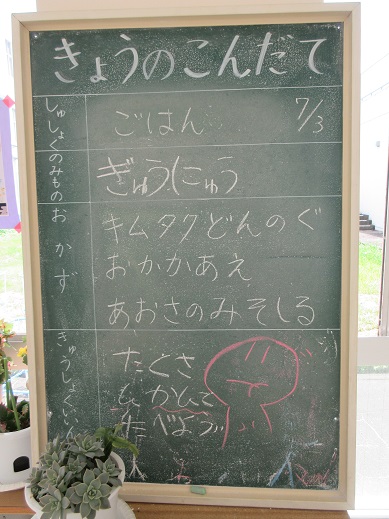 きょうのこんだて
しゅしょく
ごはん
7/3
のみもの
ぎゅうにゅう
おかず
キムタクどんのぐ
おかかあえ
あおさのみそしる
きゅうしょくいいん
たくさ
ん かんで
たべよう